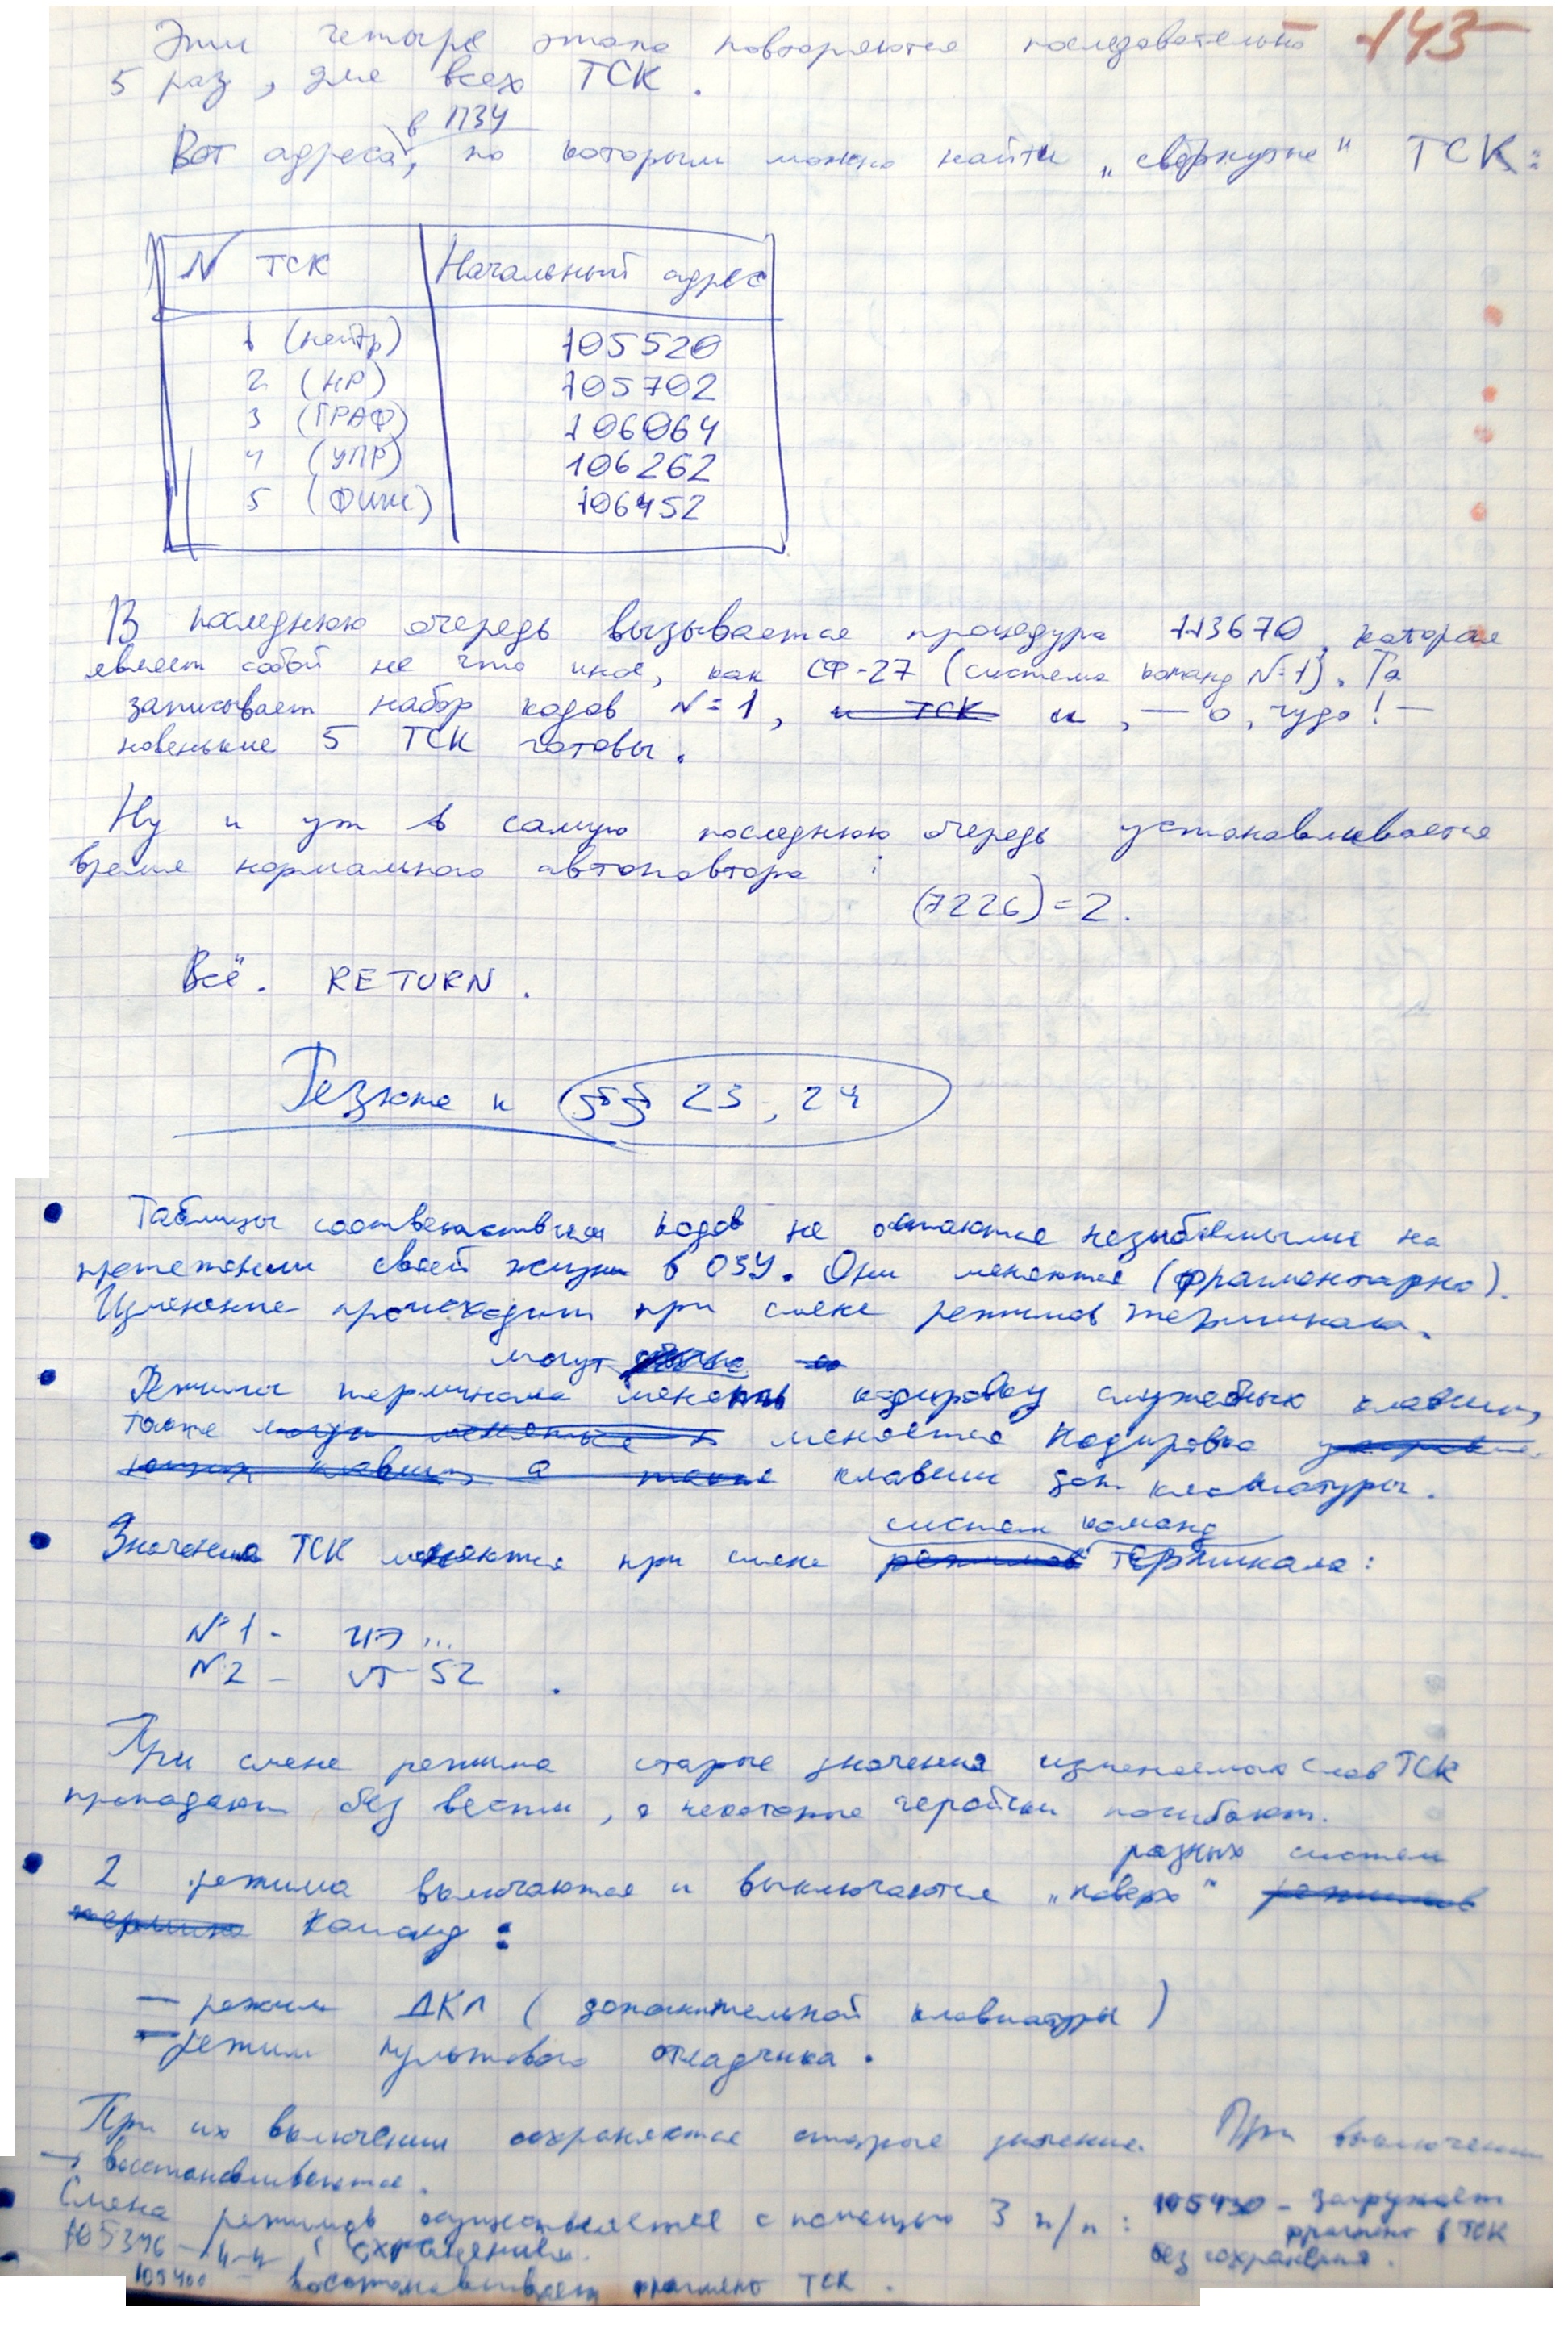 -143-
Эти четыре этапа повторяются последовательно
5 раз, для всех ТСК.
в ПЗУ
Вот адреса, по которым можно найти „свёрнутые" ТСК:
N ТСК Начальный адрес
1 (нейтр) 105520
2 (НР) 105702
3 (ГРАФ) 106064
4 (УПР) 106262
5 (Фикс) 106452
В последнюю очередь вызывается процедура 113670, которая
являет собой не что иное, как СФ-27 (система команд №1). Та
записывает набор кодов №1, и ТСК и, — о, чудо! —
новенькие 5 ТСК готовы.
Ну и уж в самую последнюю очередь устанавливается
время нормального автоповтора :
(7226)=2.
Всё. RETURN.
Резюме к §§ 23, 24
Таблицы соответствия кодов не остаются незыблемыми на
протяжении своей жизни в ОЗУ. Они меняются (фрагментарно).
Изменение происходит при смене режимов терминала.
могут
Режимы терминала менять кодировку служебных клавиш,
также могут меняться меняется кодировка
клавиш а также клавиш доп. клавиатуры.
систем команд
Значения ТСК меняются при смене режимов терминала:
№1 -
№2 - VT-52 .
При смене режима старые значения изменяемых слов ТСК
пропадают без вести, а некоторые геройски погибают.
разных систем
2 режима включаются и выключаются „поверх" режимов
термина команд :
— режим ДКЛ ( дополнительной клавиатуры )
— режим пультового отладчика .
При их включении сохраняются старые значения. При выключении
→ восстанавливаются.
Смена режимов осуществляется с помощью 3 п/п : 105430 - загружает
фрагмент в ТСК
без сохранения.
105346 - -"- с сохранением.
105400 - восстанавливает фрагмент ТСК .